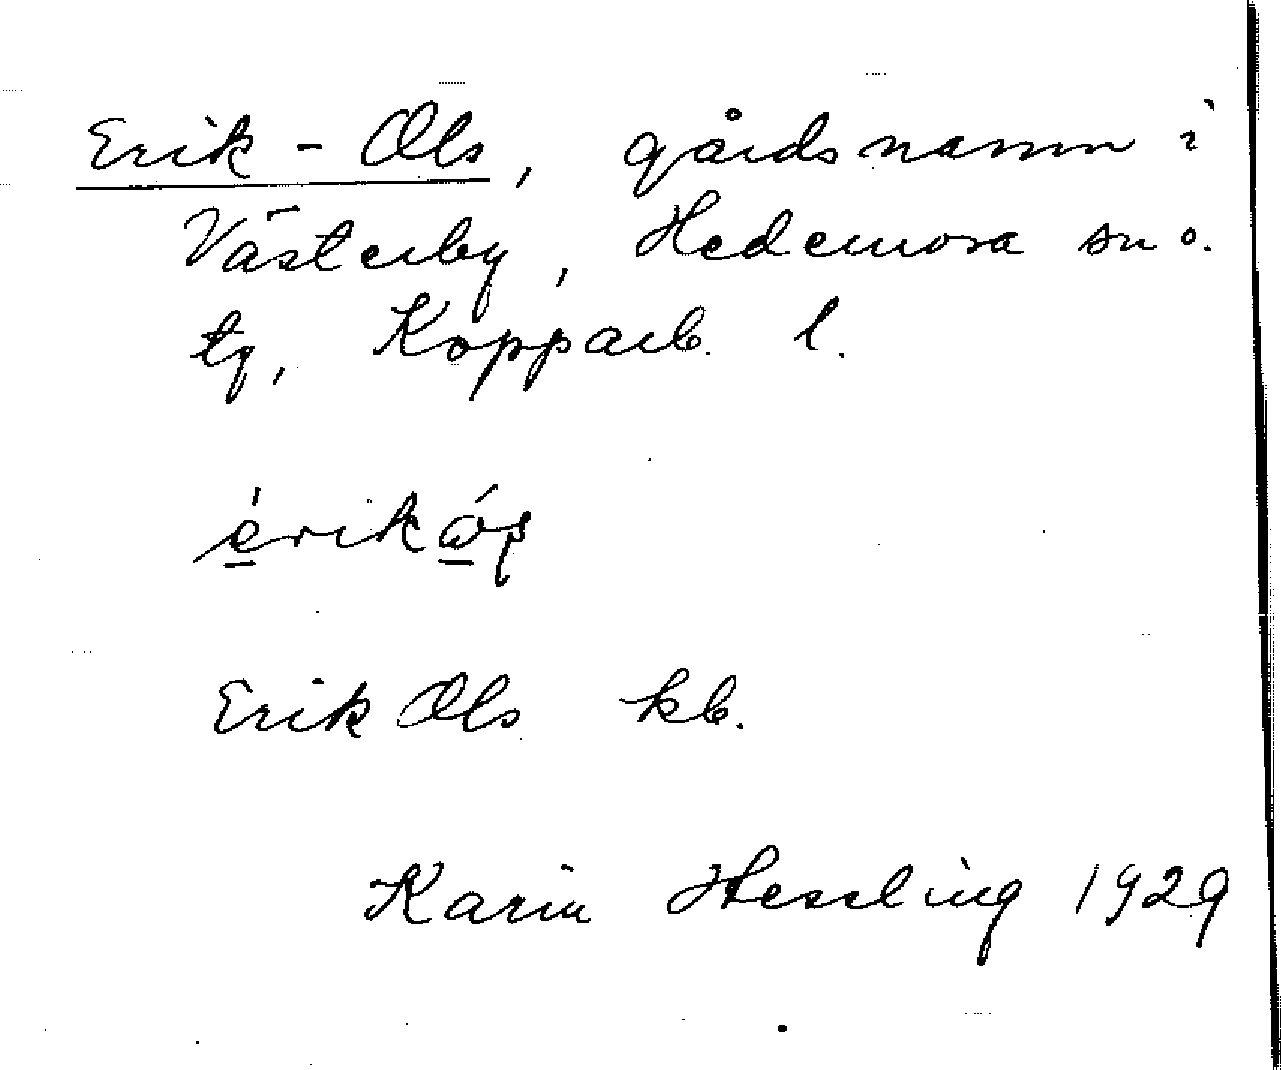 Erik - Ols, gårdsnamn i
Västerby, Hedemora sn o.
tg, Kopparb. l.
Erik Ols kb.
Karin Hessling 1929